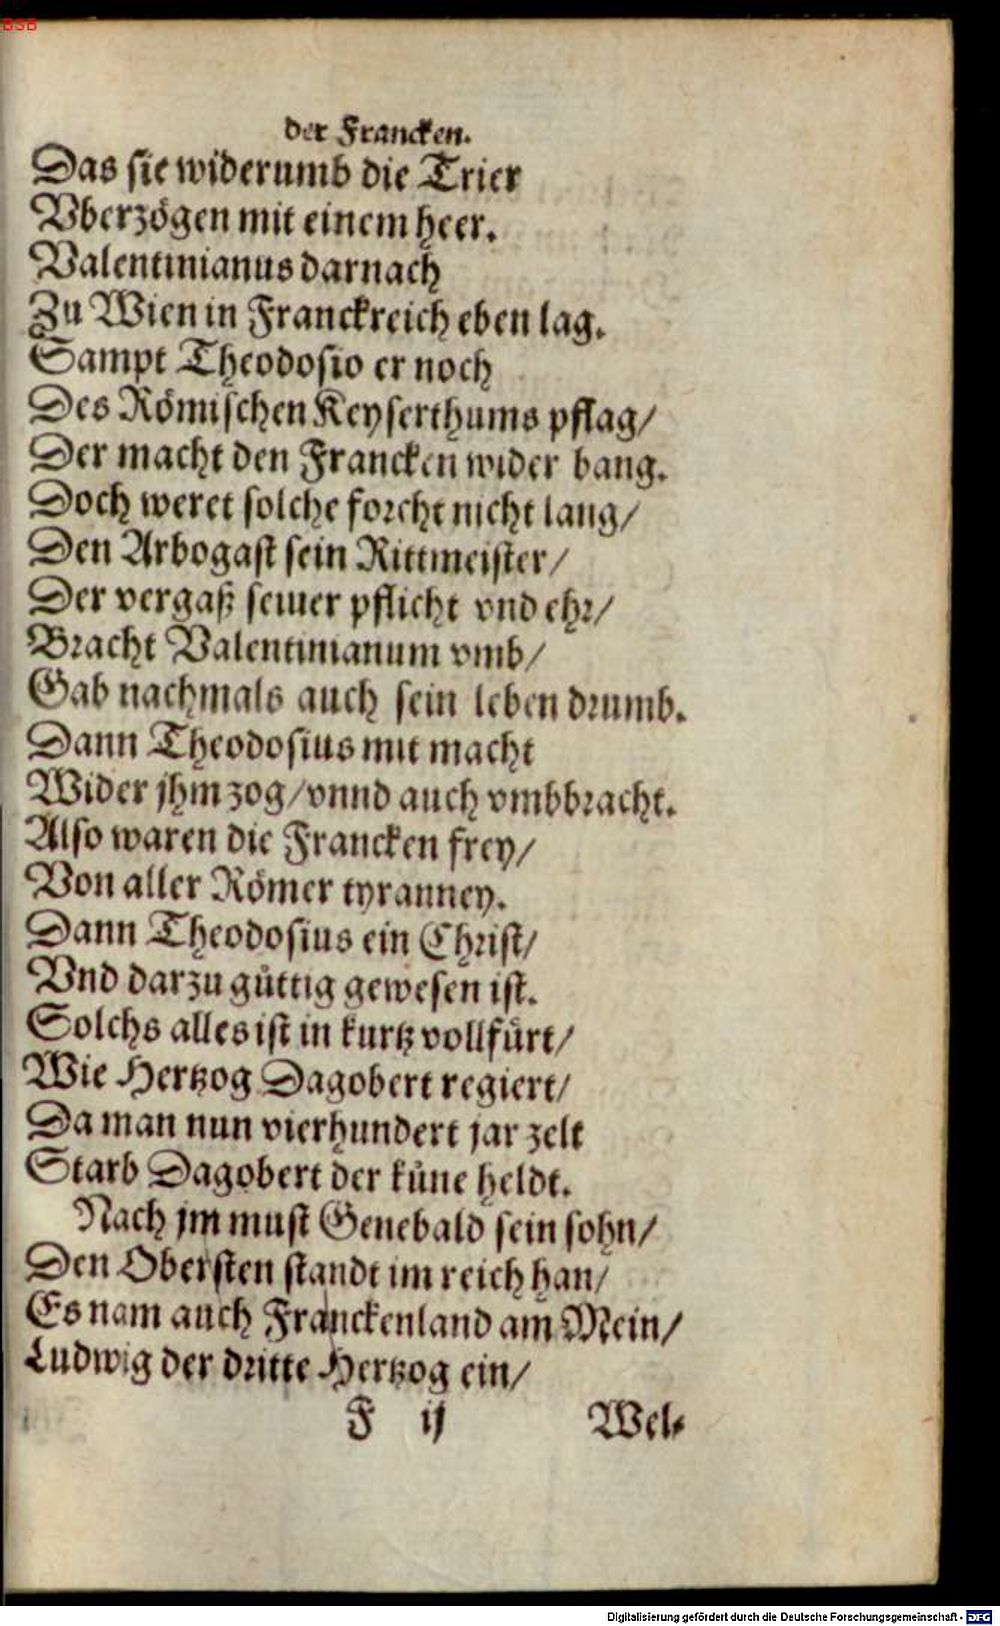 BSB
der Francken.
Das sie widerumb die Trier
Vberzögen mit einem heer.
Valentinianus darnach
Zu Wien in Franckreich eben lag.
Sampt Theodosio er noch
Des Römischen Keyserthums pflag/
Der macht den Francken wider bang.
Doch weret solche forcht nicht lang/
Den Arbogast sein Rittmeister/
Der vergaß seiner pflicht vnd ehr/
Bracht Valentinianum vmb/
Gab nachmals auch sein leben drumb.
Dann Theodosius mit macht
Wider jhm zog/vnnd auch vmbbracht.
Also waren die Francken frey/
Von aller Römer tyranney.
Dann Theodosius ein Christ/
Vnd darzu güttig gewesen ist.
Solchs alles ist in kurtz vollfürt/
Wie Hertzog Dagobert regiert/
Da man nun vierhundert jar zelt
Starb Dagobert der küne heldt.
Nach jm must Genebald sein sohn/
Den Obersten standt im reich han/
Es nam auch Franckenland am Mein/
Ludwig der dritte Hertzog ein/
F ij Wel⸗
Digitalisierung gefördert durch die Deutsche Forschungsgemeinschaft - DFG